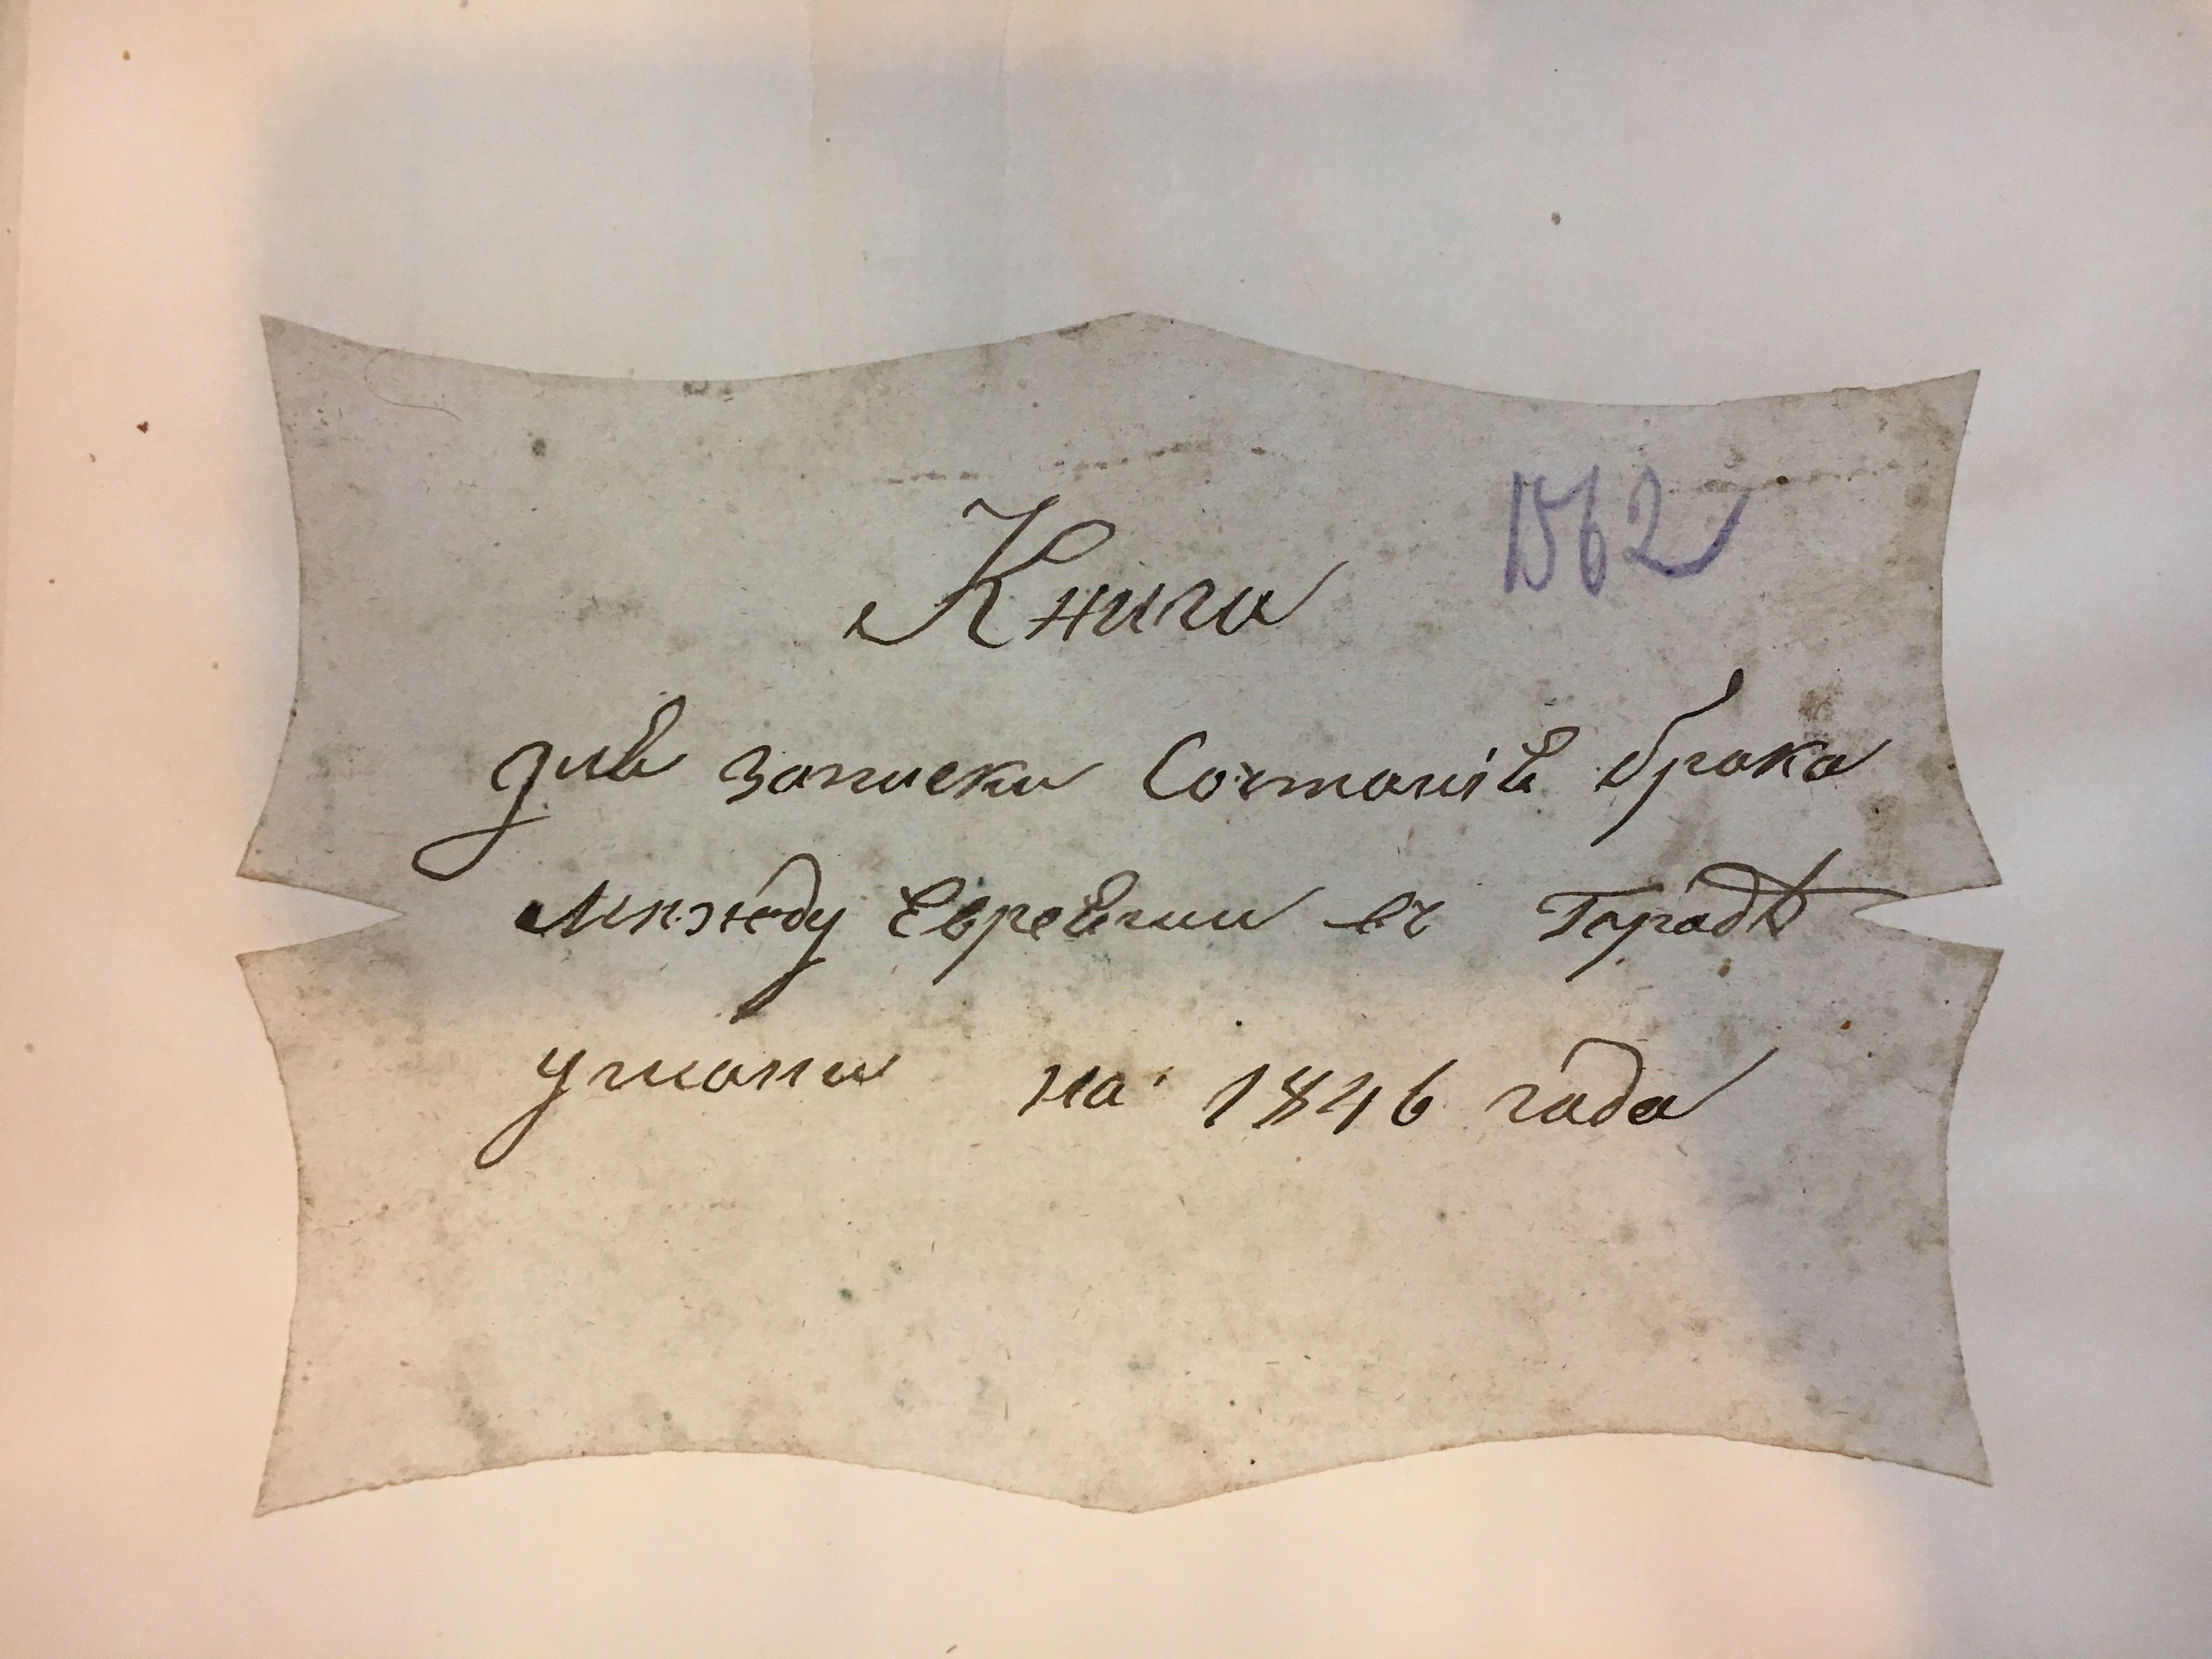 Книга 1562
для записки Сочтанія брака
между Евреями въ Городѣ
умани на 1846 года